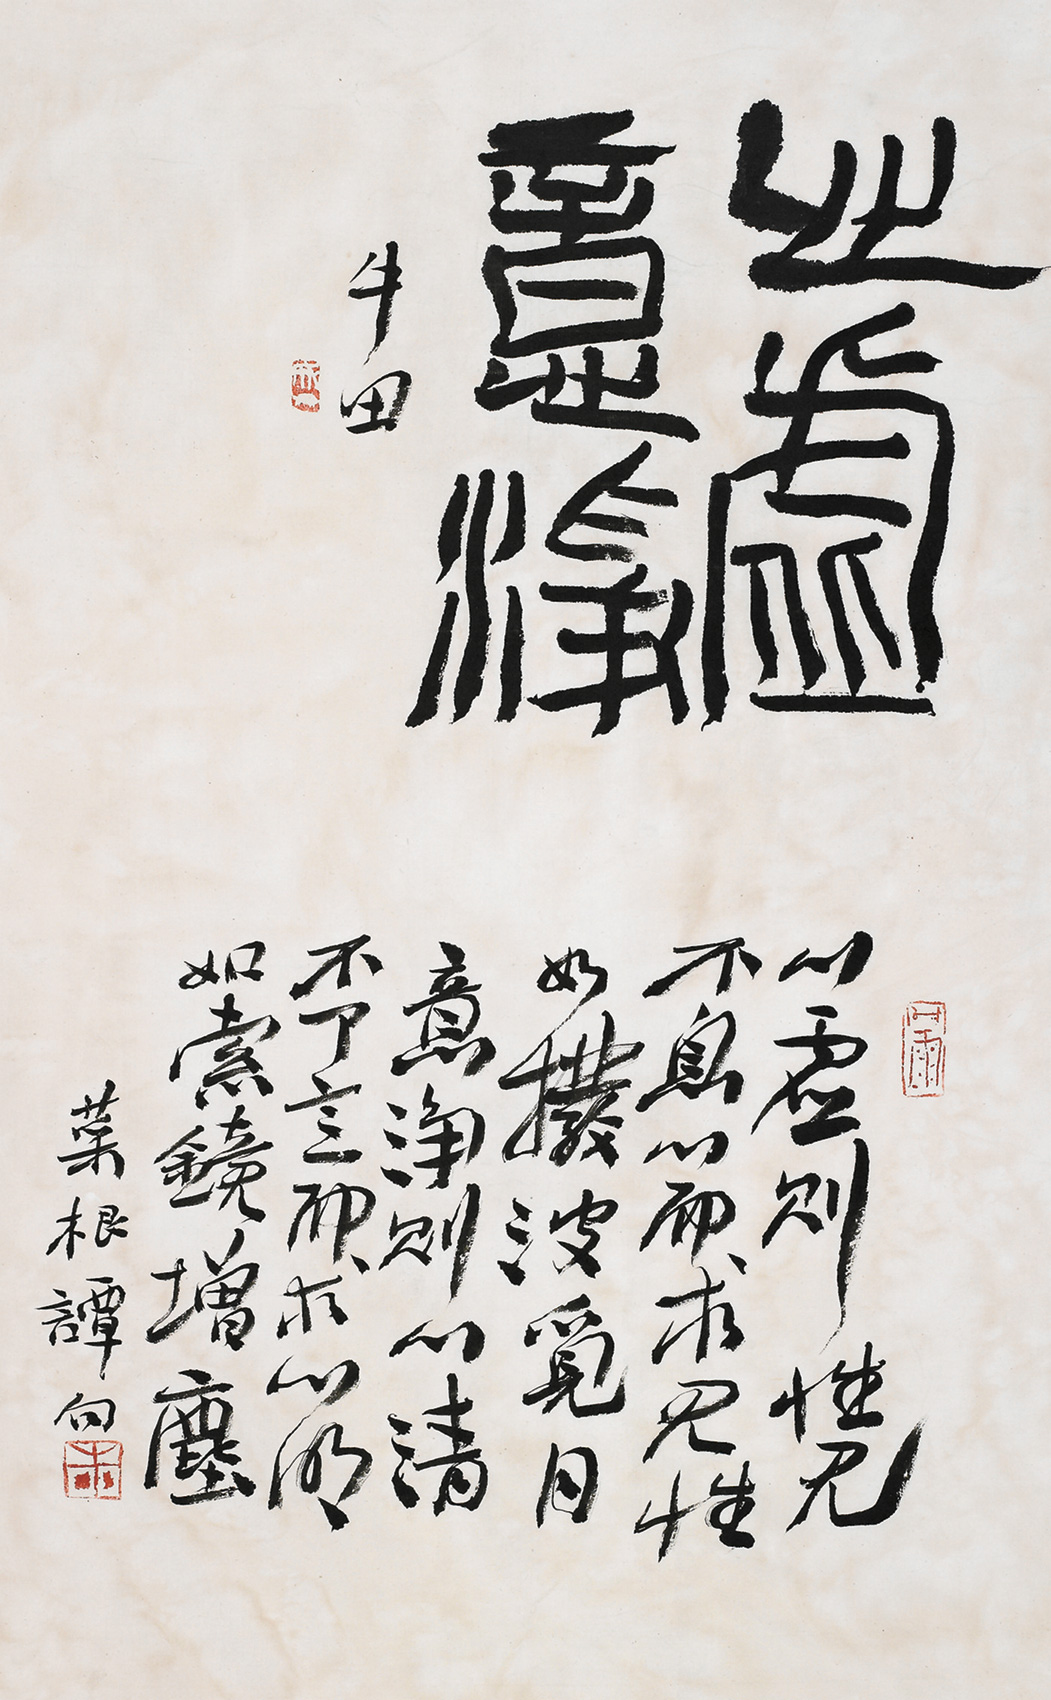 心虛
意淨
牛田
心虛則性見
不息心而求見性
如撥波覓月
意淨則心清
不了言而求心明
如索鏡增塵
菜根譚句